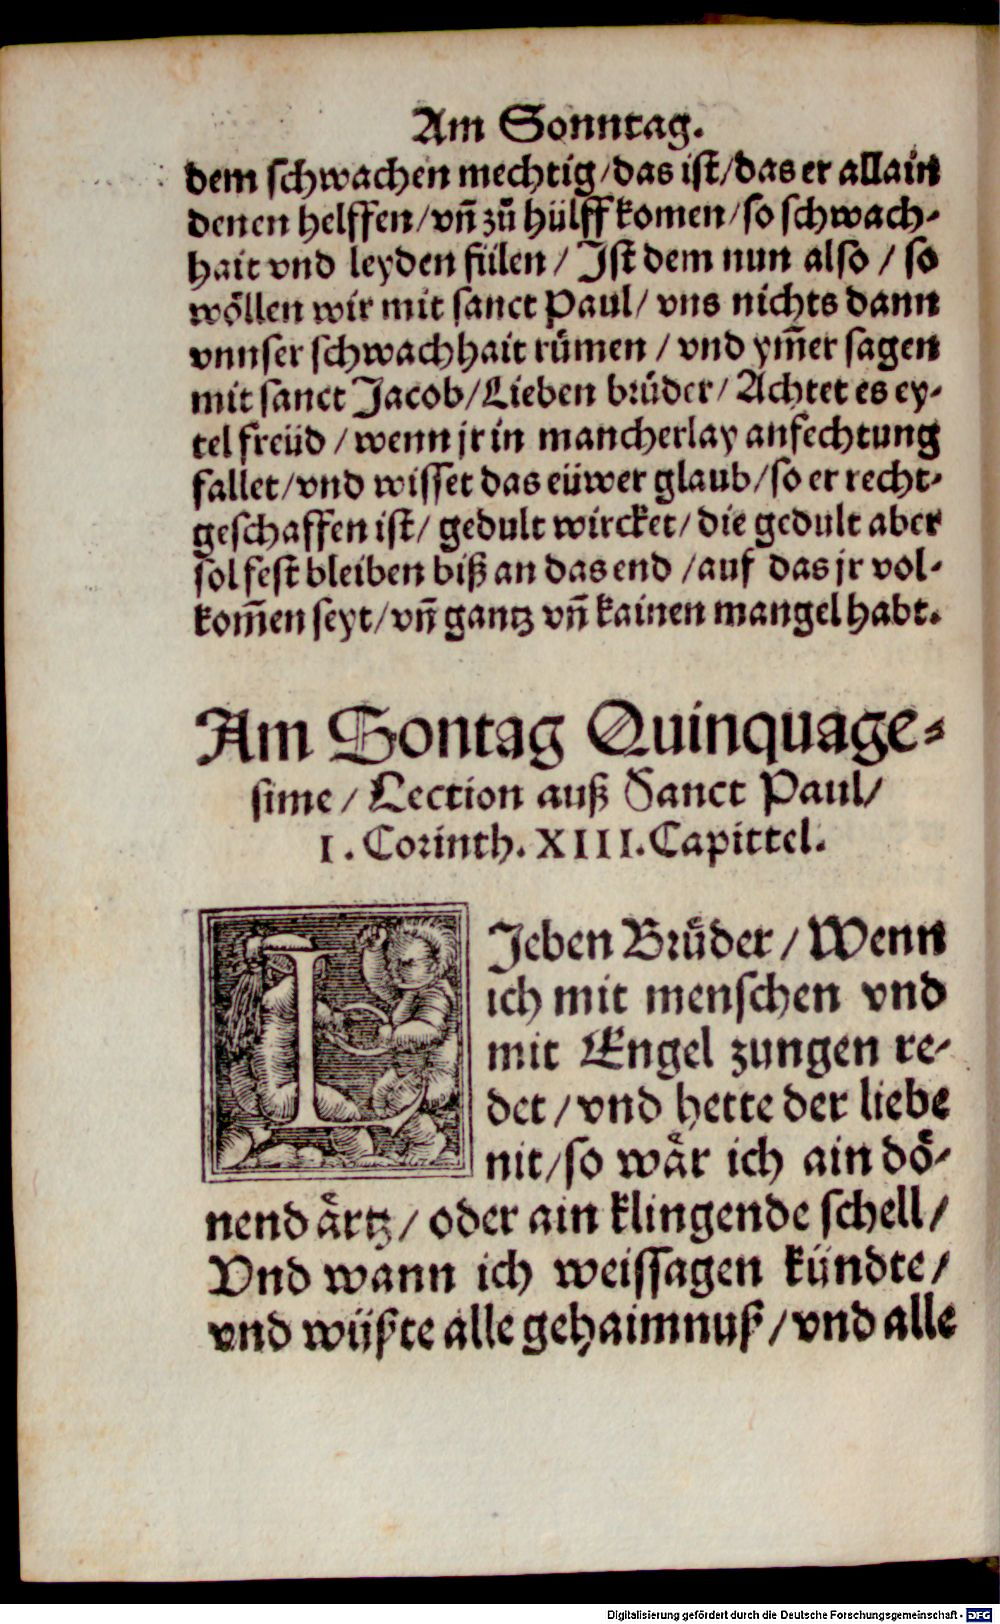 Am Sonntag.
dem schwachen mechtig/das ist/das er allain
denen helffen/vñ zů hülff komen/so schwach-
hait vnd leyden fülen/ Ist dem nun also / so
wöllen wir mit sanct Paul/ vns nichts dann
vnnser schwachhait růmen / vnd ym̃er sagen
mit sanct Jacob/Lieben brüder/ Achtet es ey-
tel freüd /wenn jr in mancherlay anfechtung
fallet/vnd wisset das eüwer glaub/so er recht-
geschaffen ist/ gedult wircket/ die gedult aber
sol fest bleiben biß an das end /auf das jr vol-
kom̃en seyt/vñ gantz vñ kainen mangel habt.
Am Sontag Quinquage-
sime / Lection auß Sanct Paul/
I. Corinth. XIII. Capittel.
LJeben Brůder / Wenn
ich mit menschen vnd
mit Engel zungen re-
det /vnd hette der liebe
nit/so waͤr ich ain doͤ-
nend aͤrtz/ oder ain klingende schell/
Vnd wann ich weissagen kündte/
vnd wüßte alle gehaimnuß /vnd alle
Digitalisierung gefördert durch die Deutsche Forschungsgemeinschaft - DFG